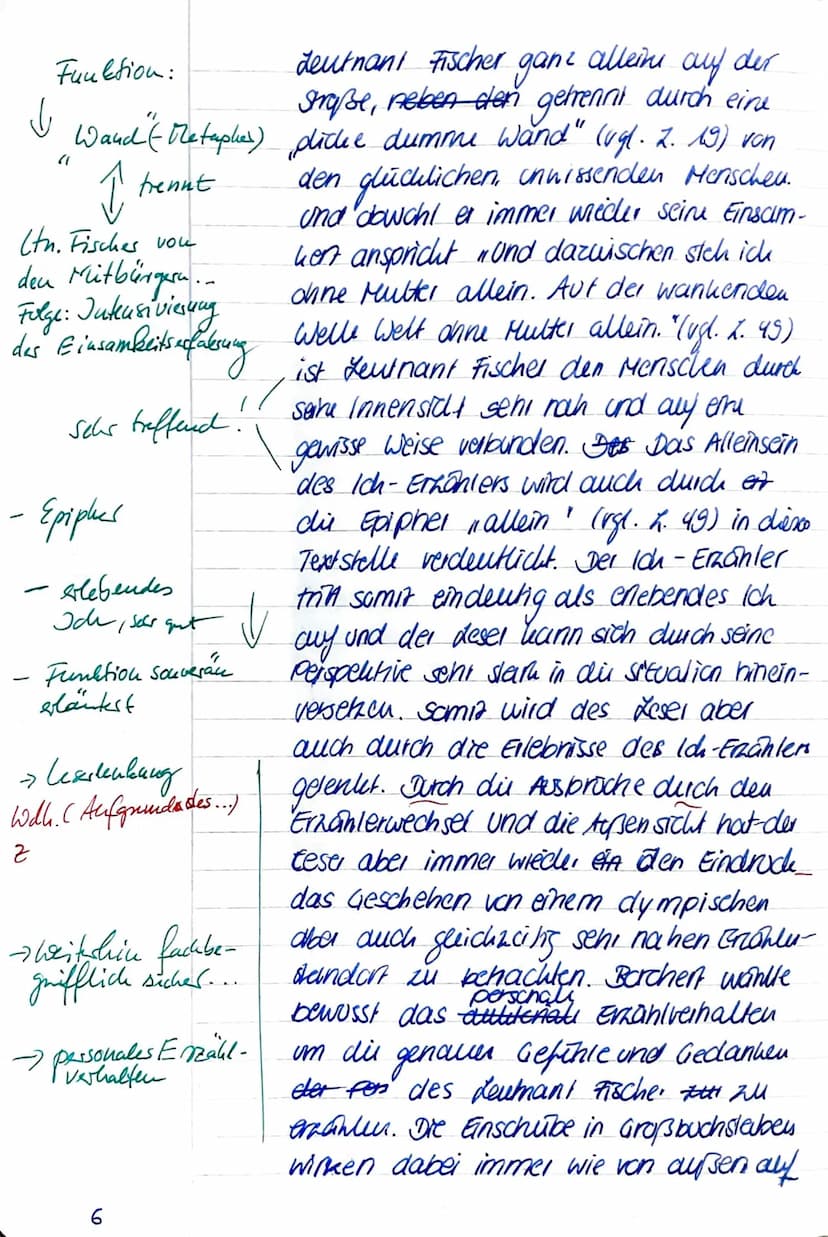 Funktion:
↓
"Wand" (-Metapher)
↕ trennt
Ltn. Fischer von
den Mitbürgern...
Folge: Intensivierung
der Einsamkeitserfahrung
sehr treffend!
- Epipher
- erlebendes
Ich, sehr gut
- Funktion souverän
erläutert
→ Leserlenkung
Wdh. (Aufgrund des...)
Z
→ weiterhin fachbe-
grifflich sicher...
→ personales Erzähl-
verhalten
Leutnant Fischer ganz alleine auf der
Straße, neben den getrennt durch eine
„dicke dumme Wand" (vgl. Z. 19) von
den glücklichen, unwissenden Menschen.
Und obwohl er immer wieder seine Einsam-
keit anspricht „Und dazwischen steh ich
ohne Mutter allein. Auf der wankenden
Welle Welt ohne Mutter allein." (vgl. Z. 49)
ist Leutnant Fischer den Menschen durch
seine Innensicht sehr nah und auf eine
gewisse Weise verbunden. Des Das Alleinsein
des Ich-Erzählers wird auch durch
die Epipher „allein" (vgl. Z. 49) in dieser
Textstelle verdeutlicht. Der Ich-Erzähler
tritt somit eindeutig als erlebendes Ich
auf und der Leser kann sich durch seine
Perspektive sehr stark in die Situation hinein-
versetzen. Somit wird des Leser aber
auch durch die Erlebnisse des Ich-Erzählers
gelenkt. Durch die Ausbrüche durch den
Erzählerwechsel und die Außensicht hat der
Leser aber immer wieder ein den Eindruck
das Geschehen von einem olympischen
aber auch gleichzeitig sehr nahen Erzähler-
standort zu betrachten. Borchert wählte
personale
bewusst das auktoriale Erzählverhalten
um die genauen Gefühle und Gedanken
der des Leutnant Fischer zu
erzählen. Die Einschübe in Großbuchstaben
wirken dabei immer wie von außen auf
6